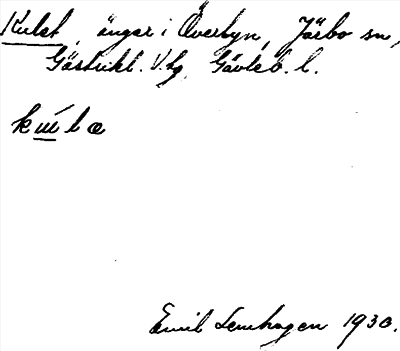 Kulet, ängar i Överbyn, Järbo sn,
Gästrikl. V. tg, Gävleb. l.
kula
Emil Lenhagen 1930.